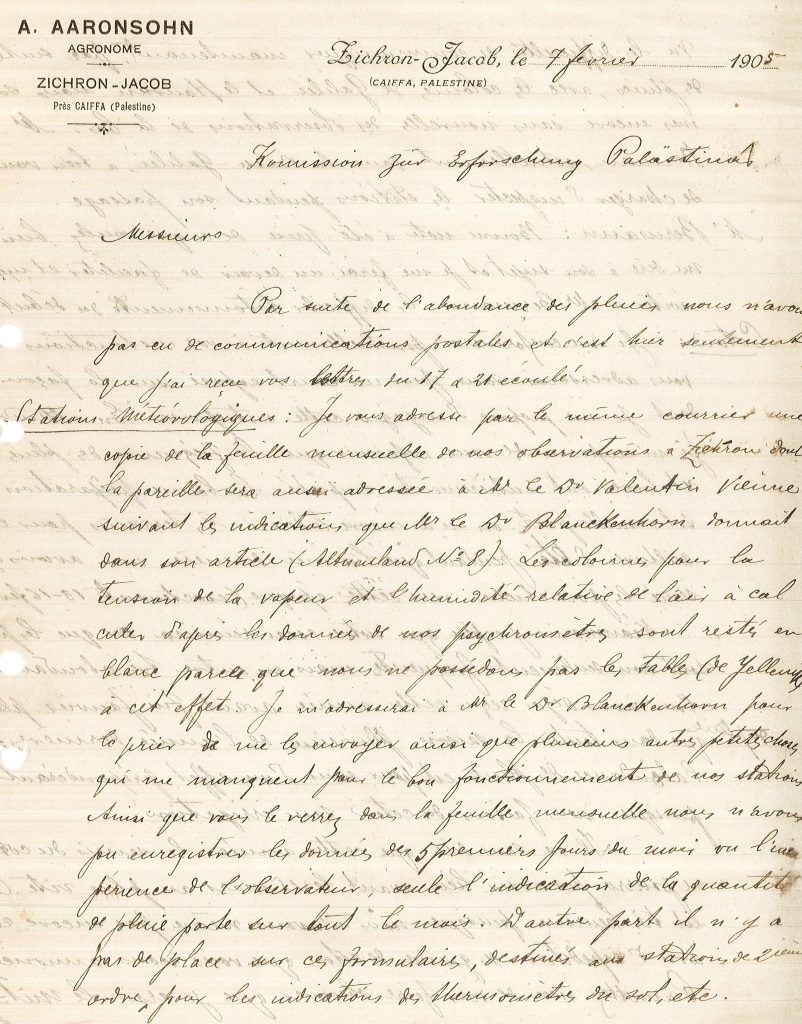 A. AARONSOHN
AGRONOME
ZICHRON-JACOB
Près CAIFFA (Palestine)
Zichron-Jacob, le 7 février 1905
(CAIFFA, PALESTINE)
Komission zür Erforschung Palästinas
Messieurs
Par suite de l'abondance des pluies nous n'avons
pas eu de communications postales et c'est hier seulement
que j'ai reçu vos lettres du 17 & 21 écoulé.
Stations Météorologiques : Je vous adresse par le même courrier une
copie de la feuille mensuelle de nos observations à Zichron dont
la pareille sera aussi adressée à Mr le Dr Valentin Vienne
suivant les indications que Mr le Dr Blanckenhorn donnait
dans son article (Altneuland No 8). Les colonnes pour la
tension de la vapeur et l'humidité relative de l'air à cal
culer d'après les données de nos psychromètres sont restés en
blanc parce que nous ne possédons pas les tables (de Jellenick)
à cet effet. Je m'adresserai à Mr le Dr Blanckenhorn pour
le prier de me les envoyer ainsi que plusieurs autres petites choses
qui me manquent pour le bon fonctionnement de nos stations
Ainsi que vous le verrez dans la feuille mensuelle nous n'avons
pu enregistrer les données des 5 premiers jours du mois vu l'inex
périence de l'observateur, seule l'indication de la quantité
de pluie porte sur tout le mois. D'autre part il n'y a
pas de place sur ces formulaires, destinés aux stations de 2ième
ordre, pour les indications des thermomètres du sol, etc.